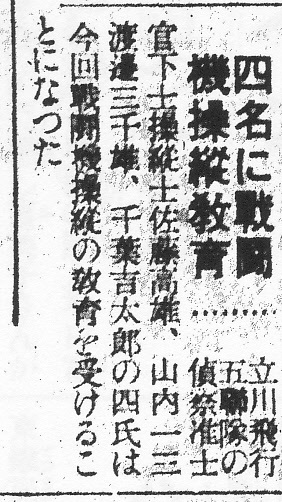 四名に戦闘
機操縦教育
立川飛行
五聯隊の
偵察准士
官下士操縦士佐藤高雄、山内一三
渡邊三千雄、千葉吉太郎の四氏は
今回戦闘機操縦の教育を受けるこ
とになつた